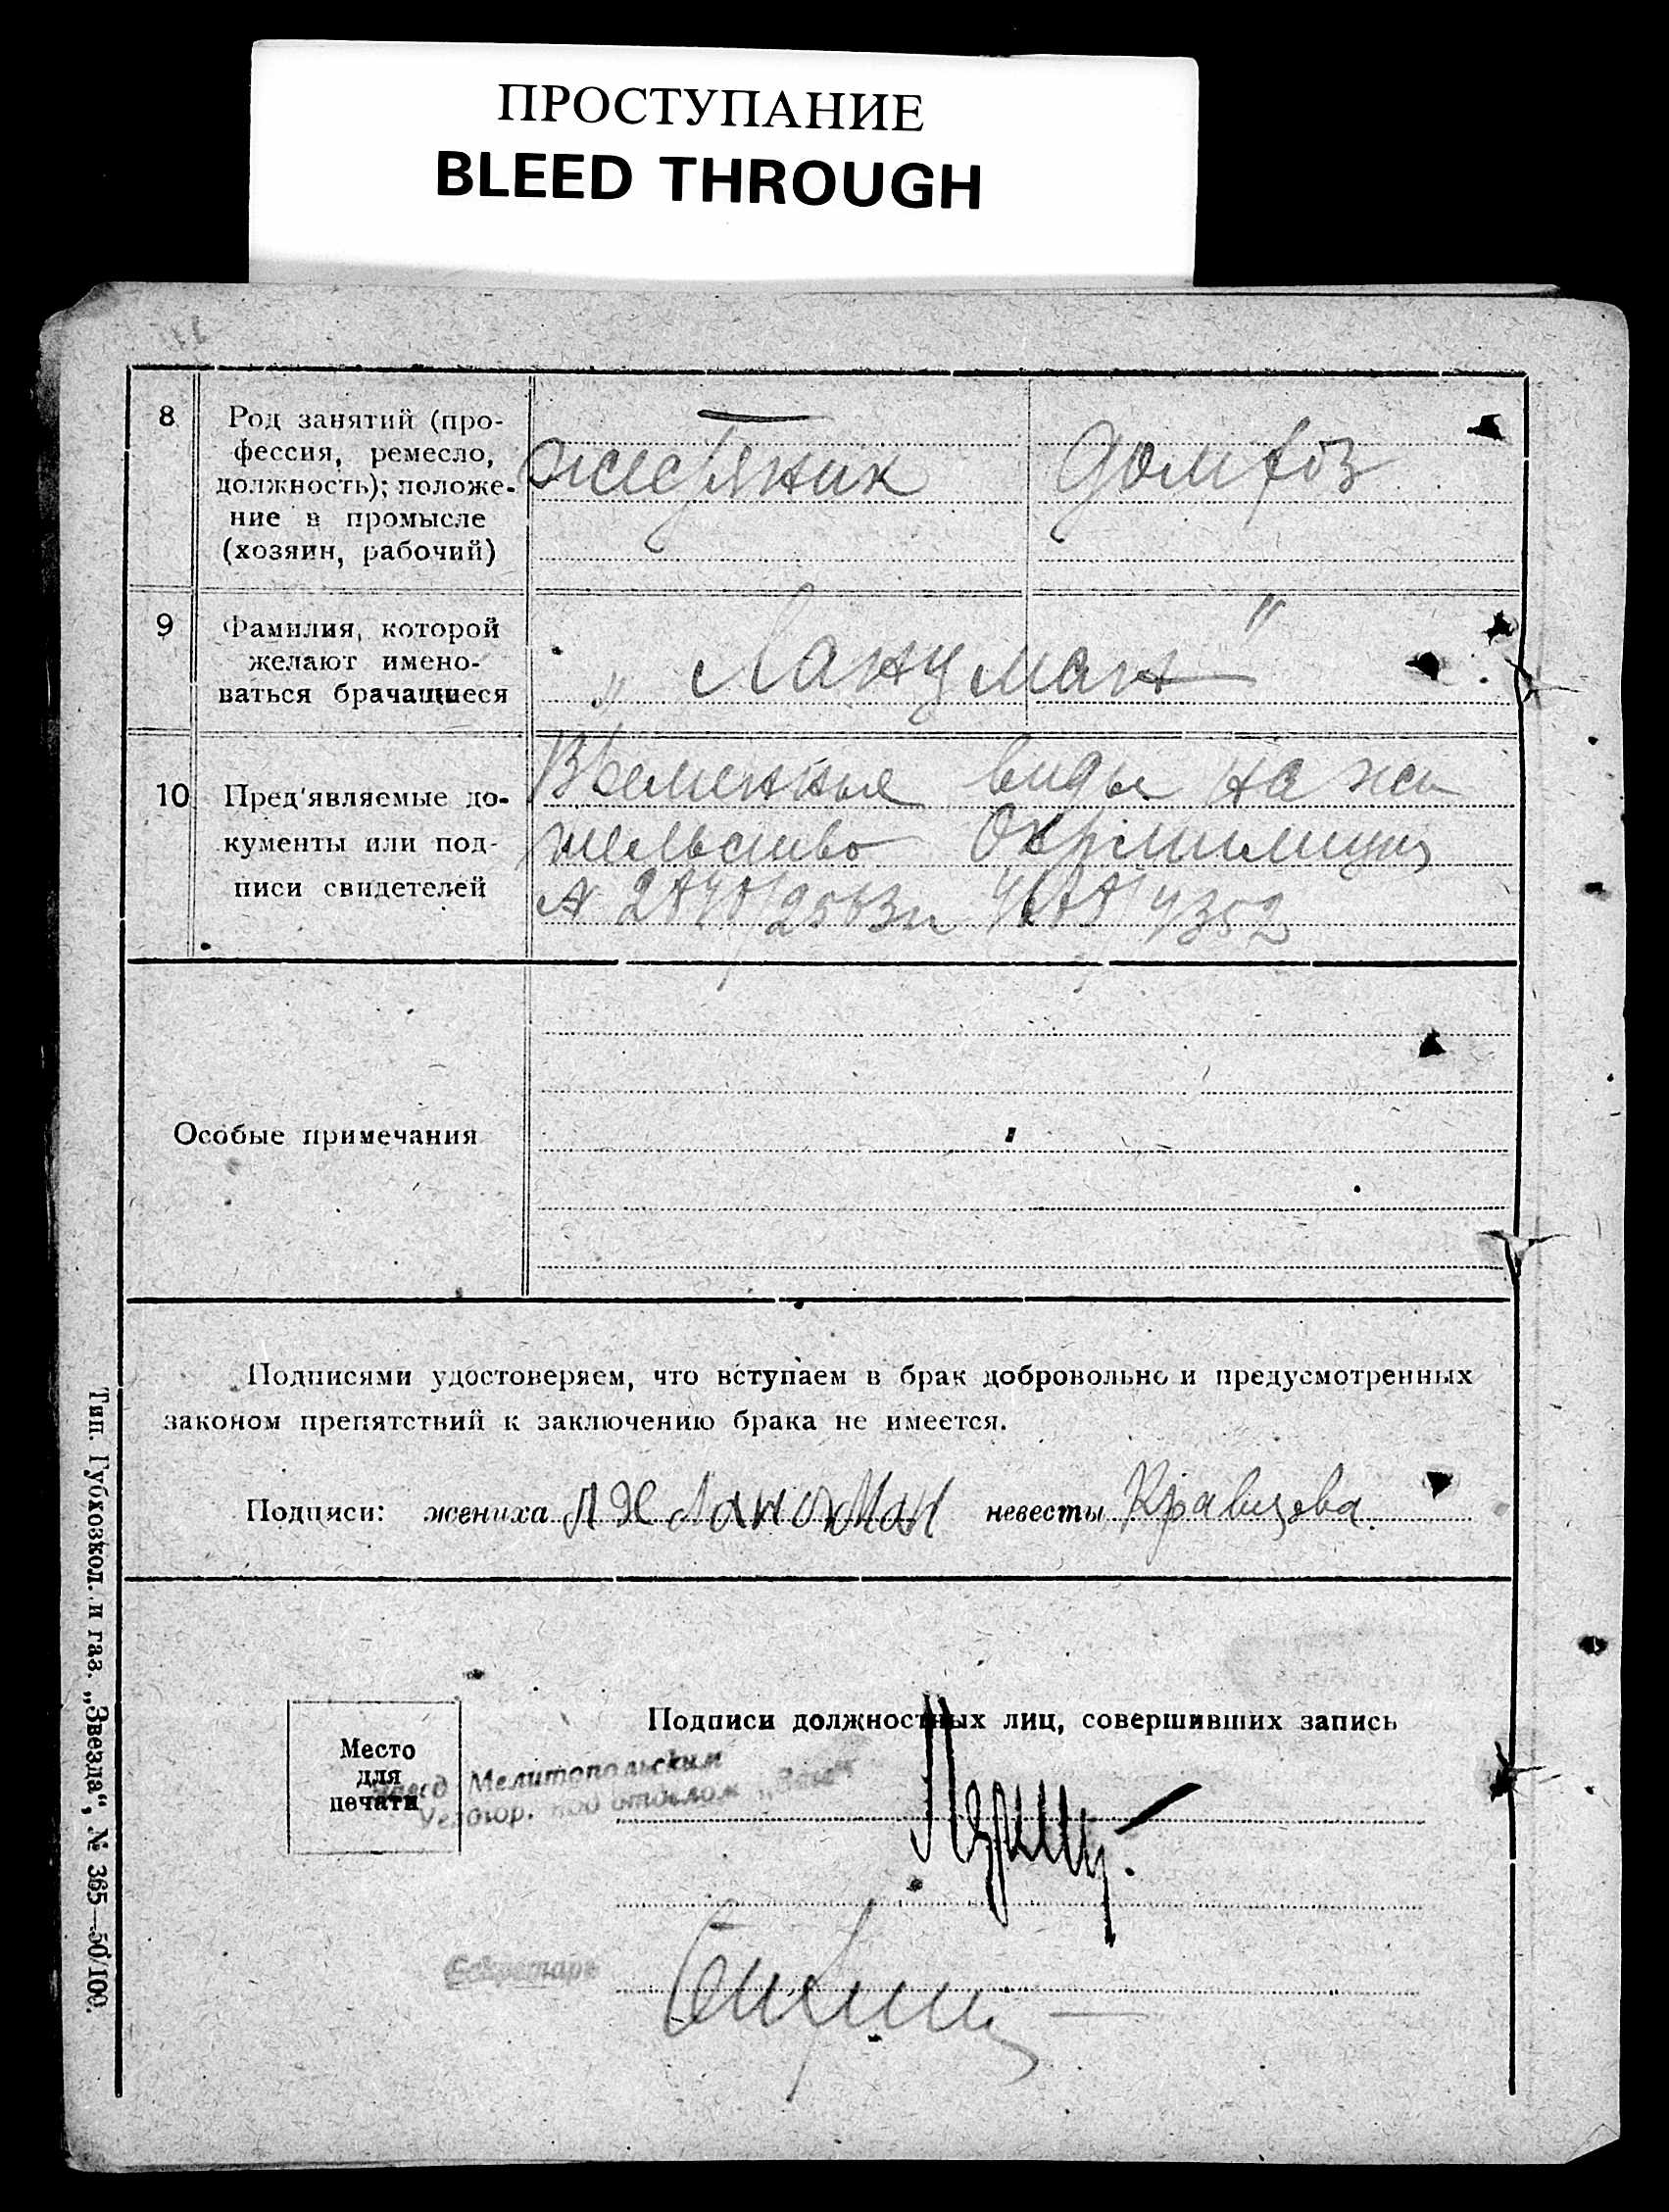 ПРОСТУПАНИЕ
BLEED THROUGH
8 Род занятий (про-
фессия, ремесло,
должность); положе-
ние в промысле
(хозяин, рабочий)
жестяник домхоз
9 Фамилия, которой
желают имено-
ваться брачащиеся
„ Ланцман "
10 Пред'являемые до-
кументы или под-
писи свидетелей
Временные виды на жи
тельство Окрмилиции
№
Особые примечания
Подписями удостоверяем, что вступаем в брак добровольно и предусмотренных
законом препятствий к заключению брака не имеется.
Подписи: жениха Ланцман невесты Кравцова.
Подписи должностных лиц, совершивших запись
Место
для
печати
Мелитопольским
под отделом „Загс"
Секретарь
Тип. Губкозкол. и газ. „Звезда", № 365—50/100.